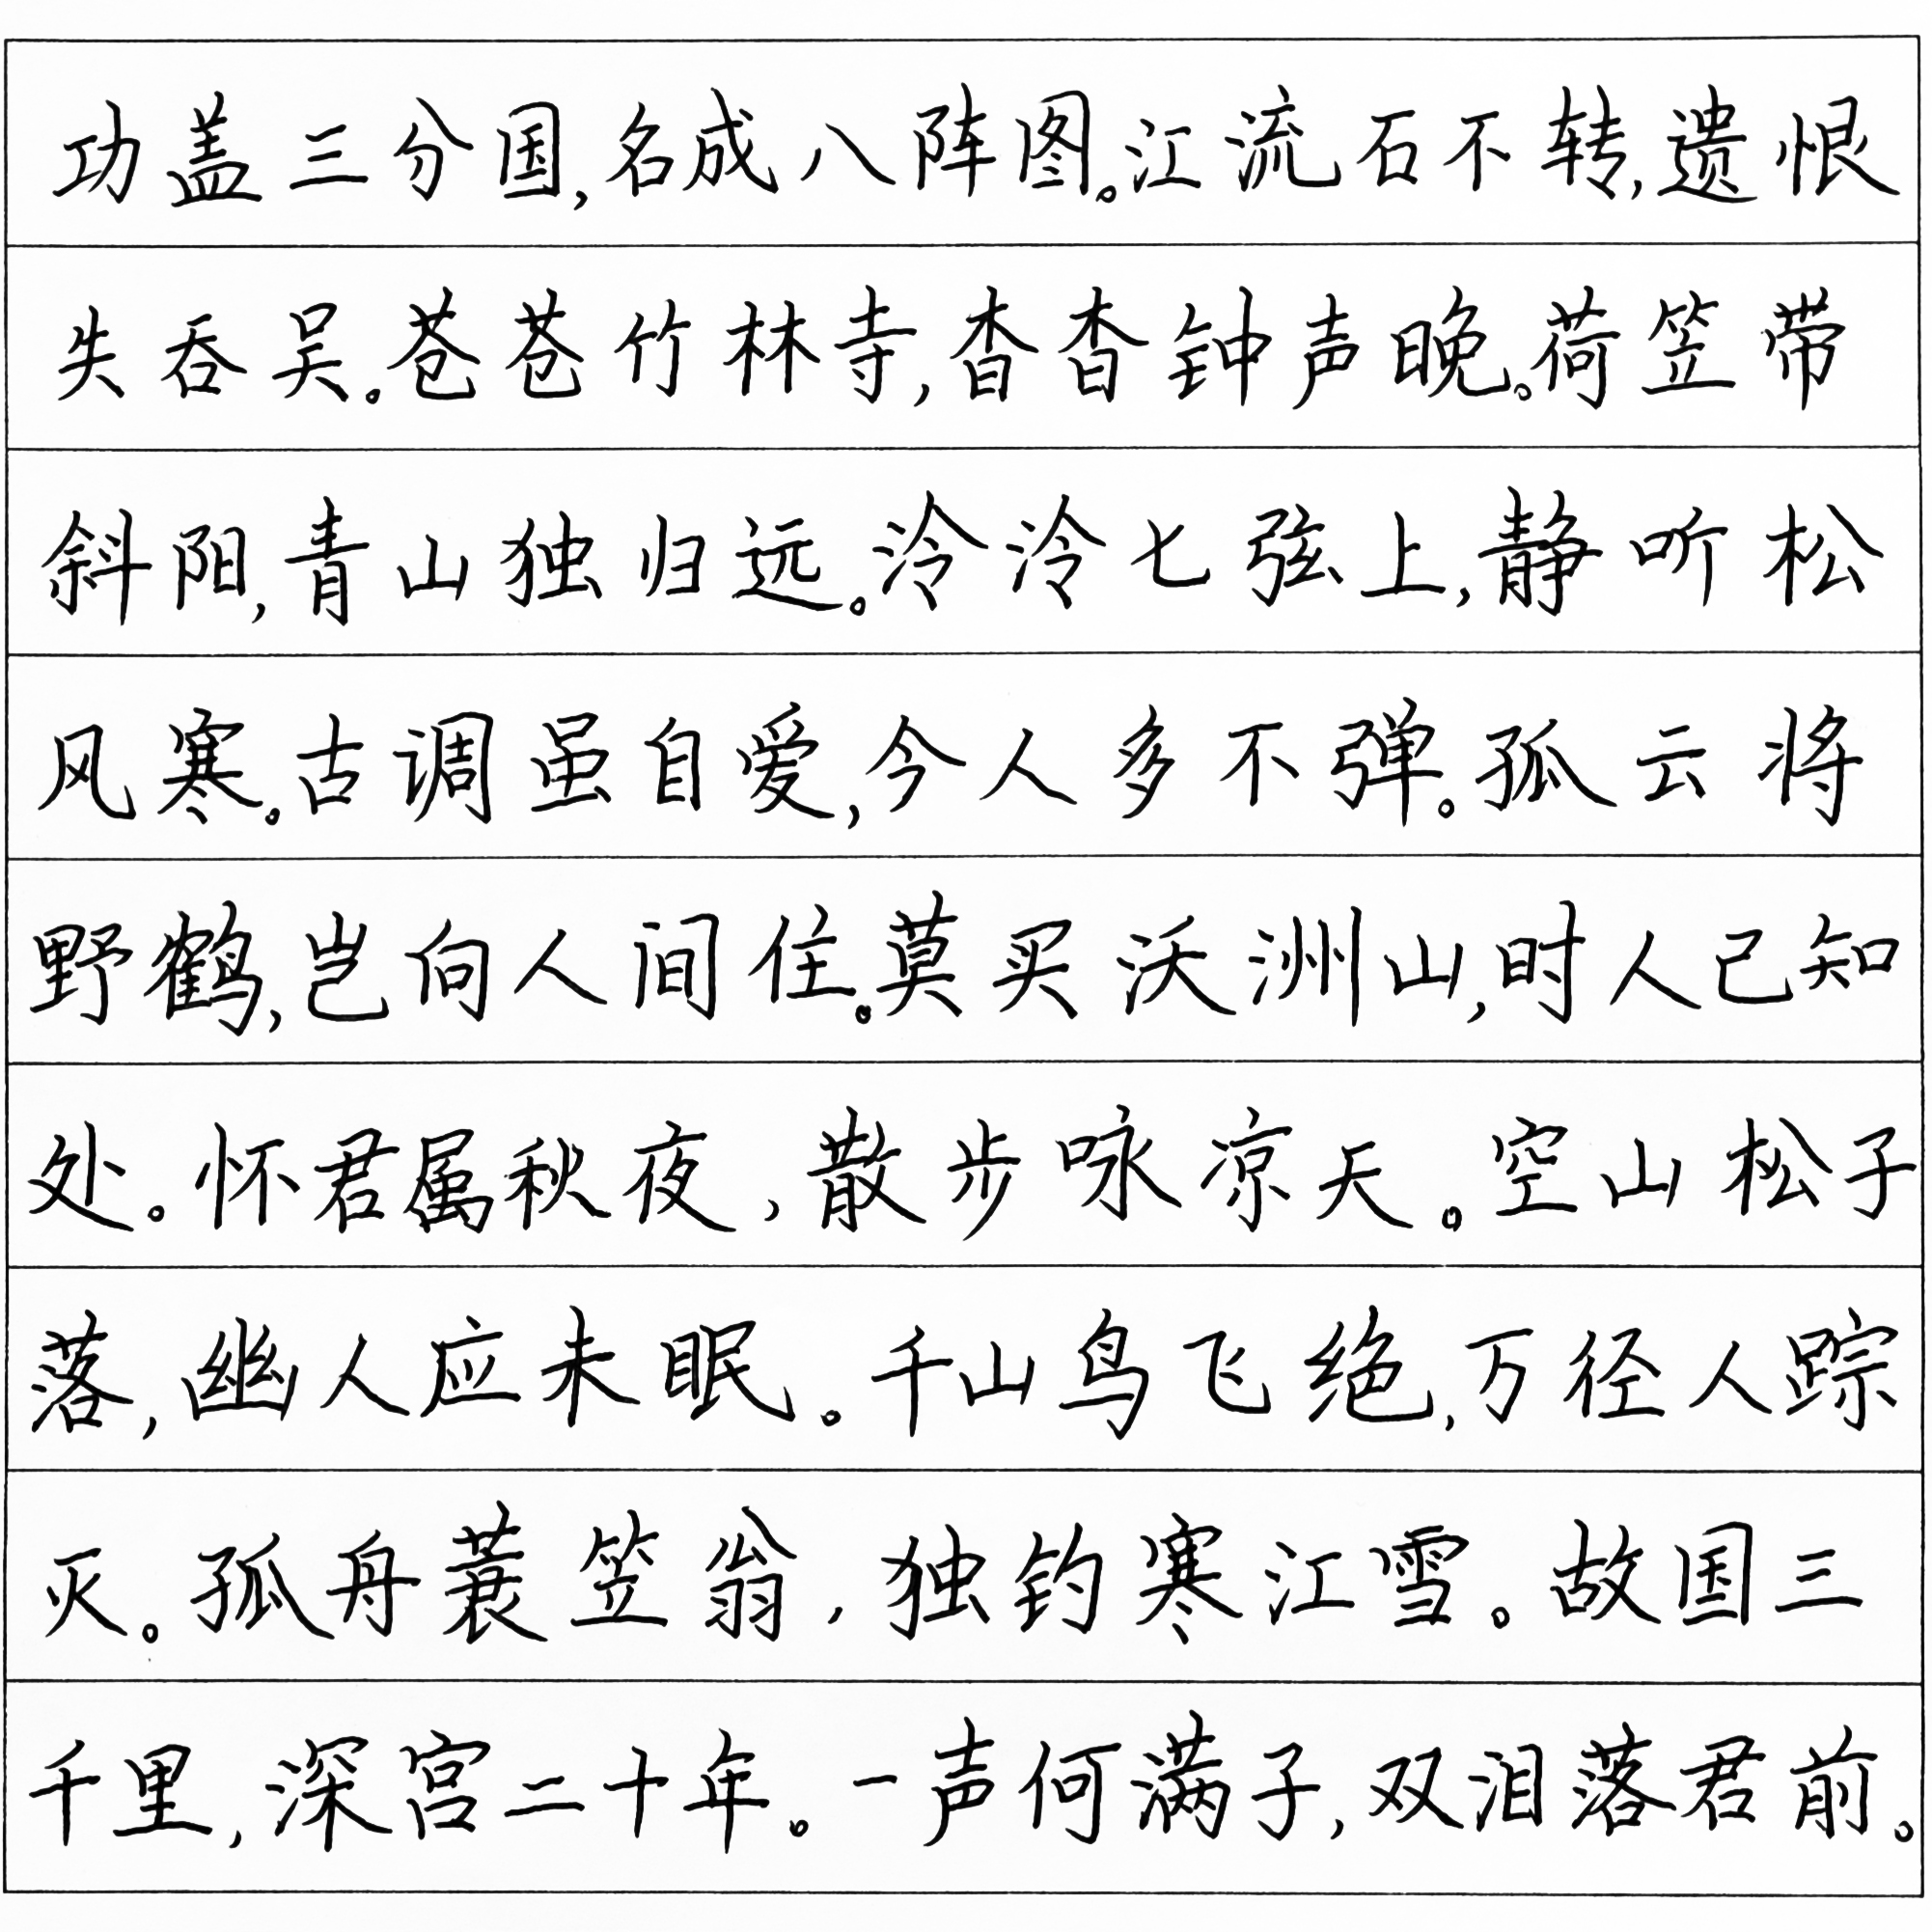 功盖三分国,名成八阵图。江流石不转,遗恨
失吞吴。苍苍竹林寺,杳杳钟声晚。荷笠带
斜阳,青山独归远。泠泠七弦上,静听松
风寒。古调虽自爱,今人多不弹。孤云将
野鹤,岂向人间住。莫买沃洲山,时人已知
处。怀君属秋夜,散步咏凉天。空山松子
落,幽人应未眠。千山鸟飞绝,万径人踪
灭。孤舟蓑笠翁,独钓寒江雪。故国三
千里,深宫二十年。一声何满子,双泪落君前。